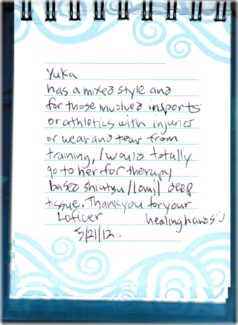 Yuka
has a mixed style and
for those involved in sports
or athletics with injuries
or wear and tear from
training, I would totally
go to her for therapy
based shiatsu/lomi/deep
tissue. Thank you for your
healing hands
5/21/12.